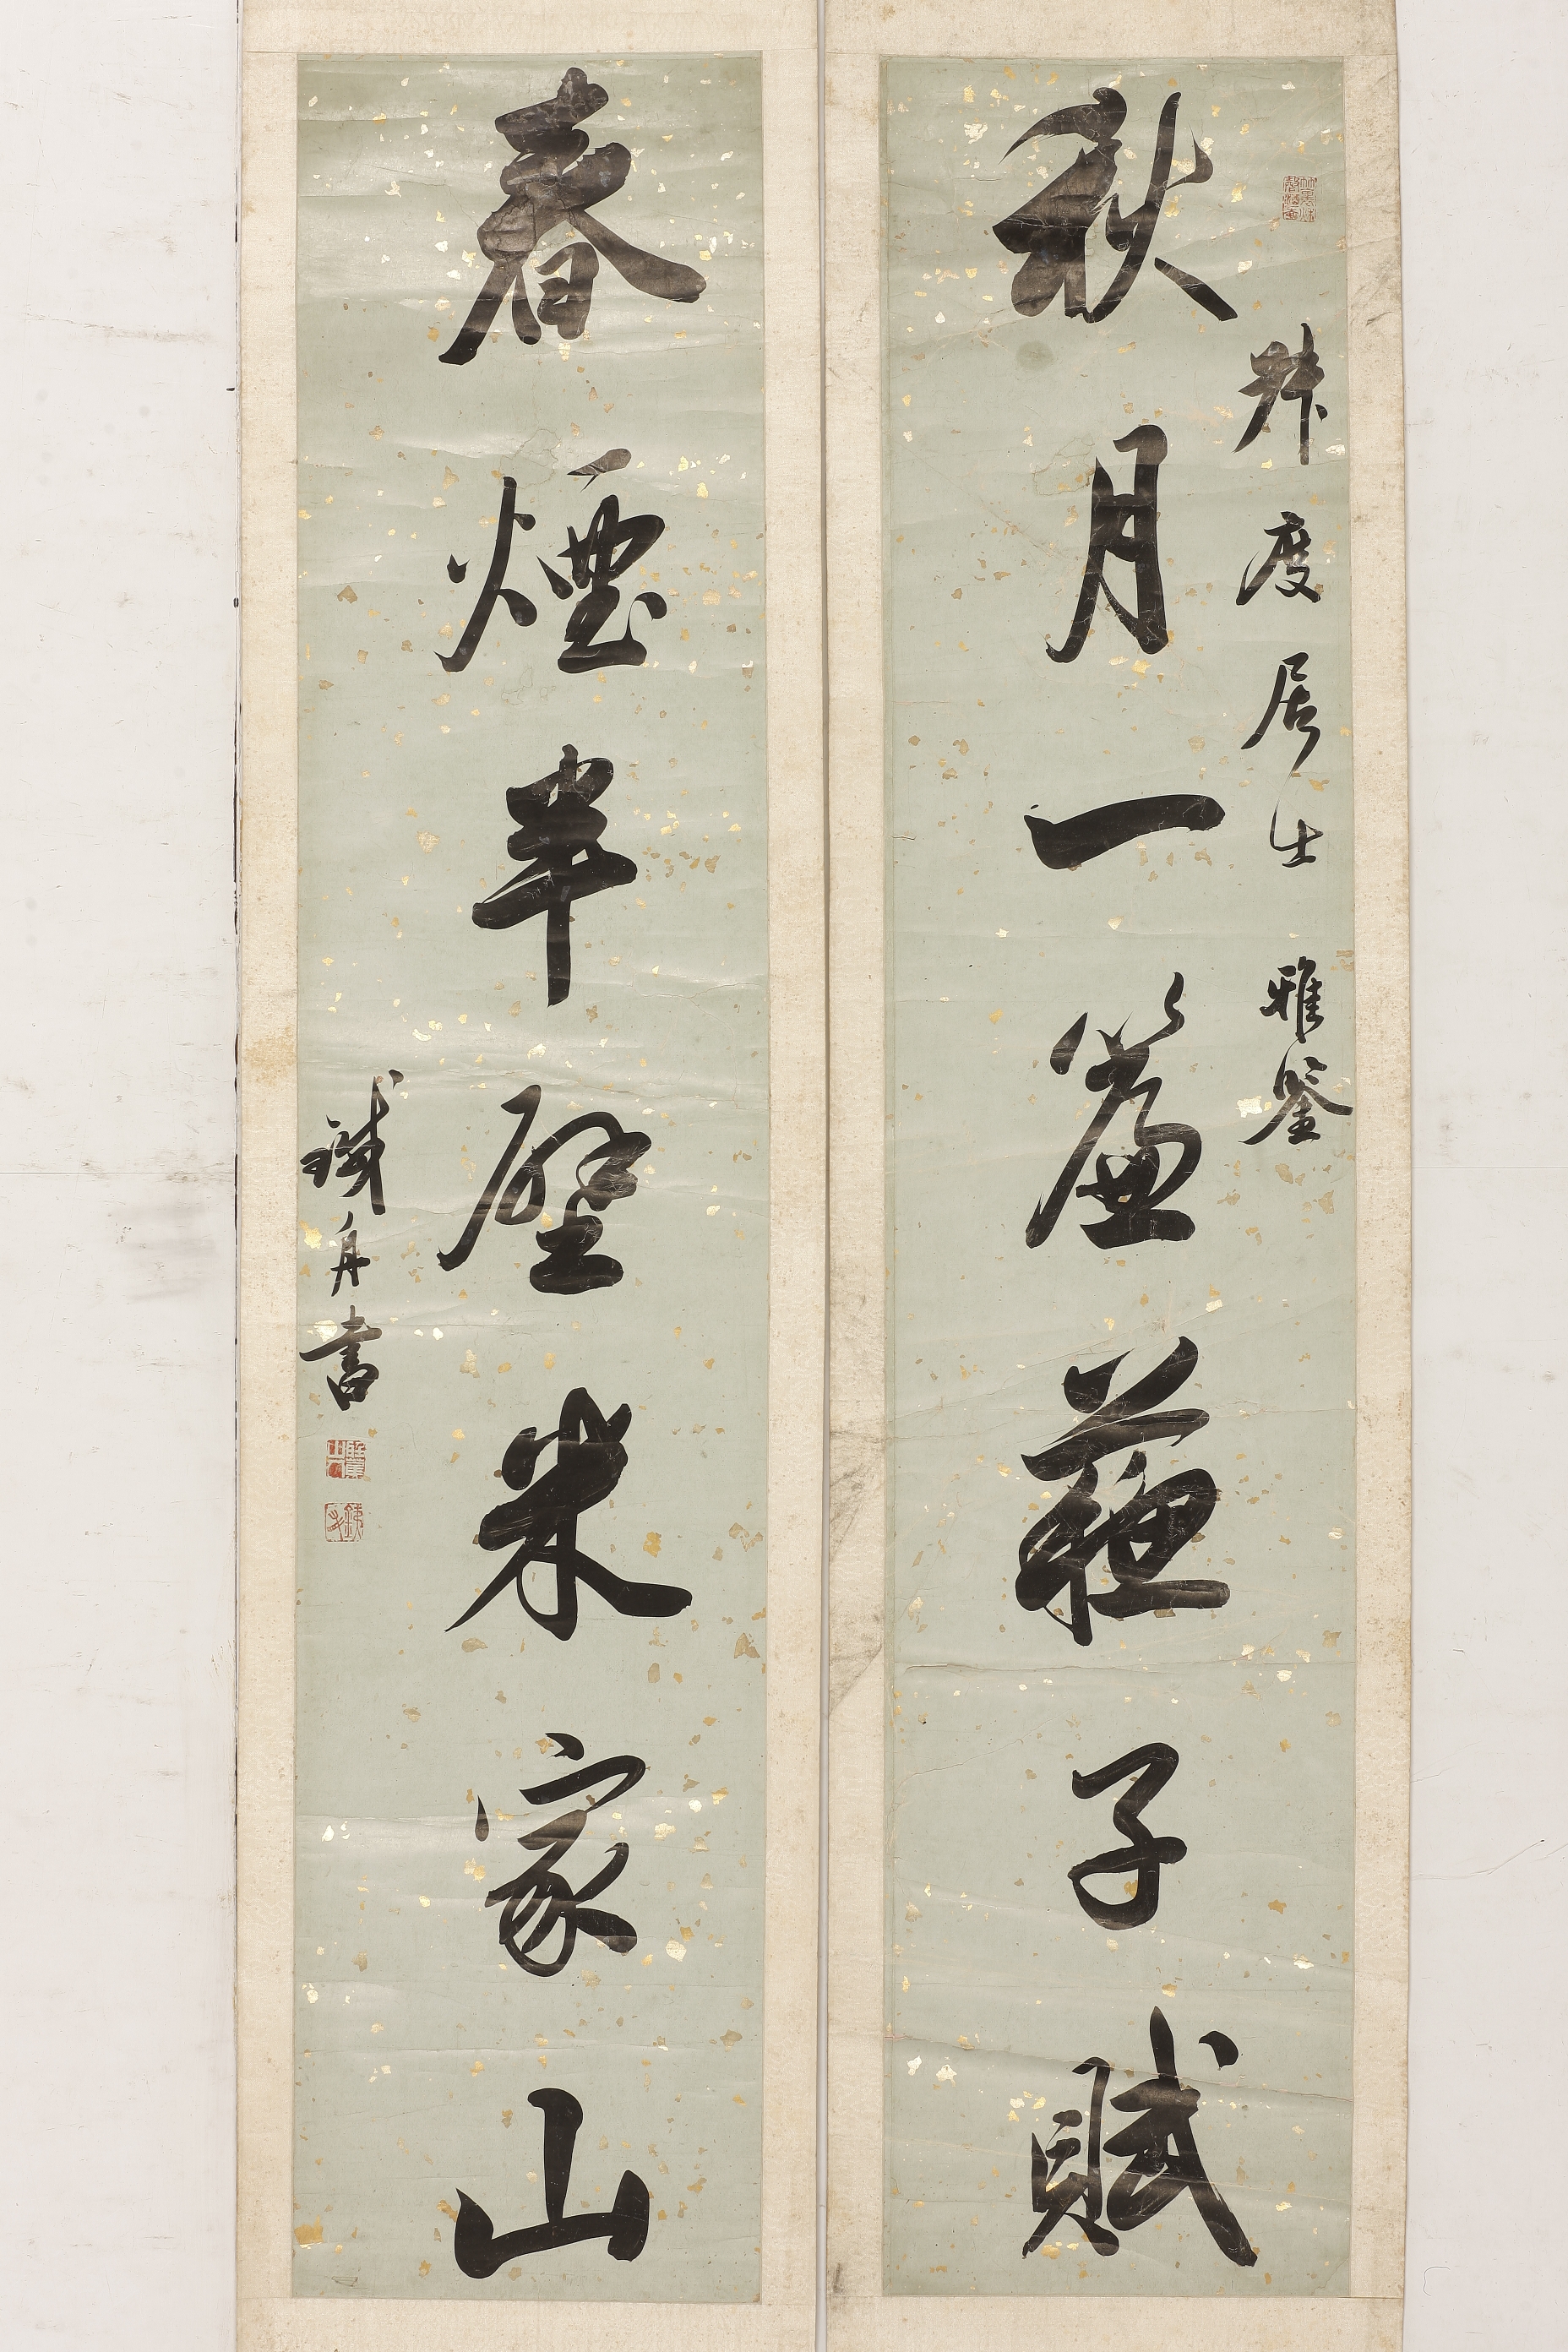 度居士雅鑒
秋月一簾蘇子賦
春煙半壁米家山
鐵舟書